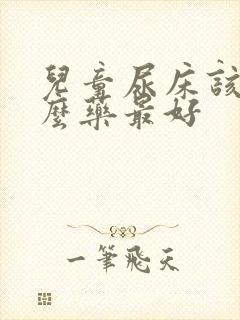 兒童尿床該
麼藥最好
一筆飛天